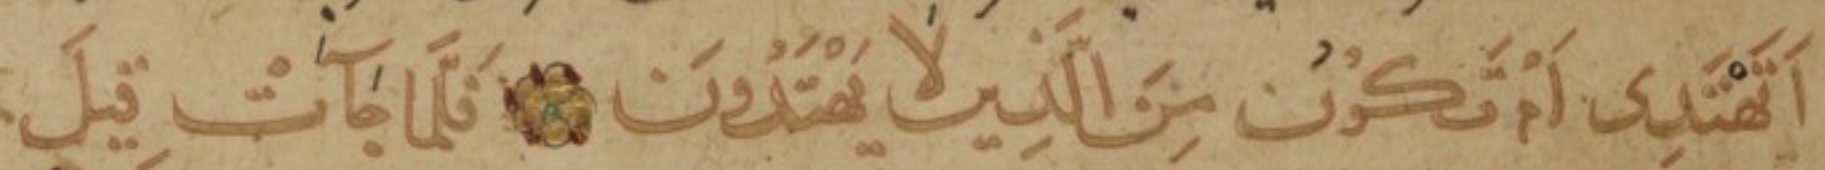 اَتَهْتَدِى اَمْ تَكُوْنُ مِنَ الَّذِينَ لَا يَهْتَدُونَ فَلَمَّا جَآءَتْ قِيلَ